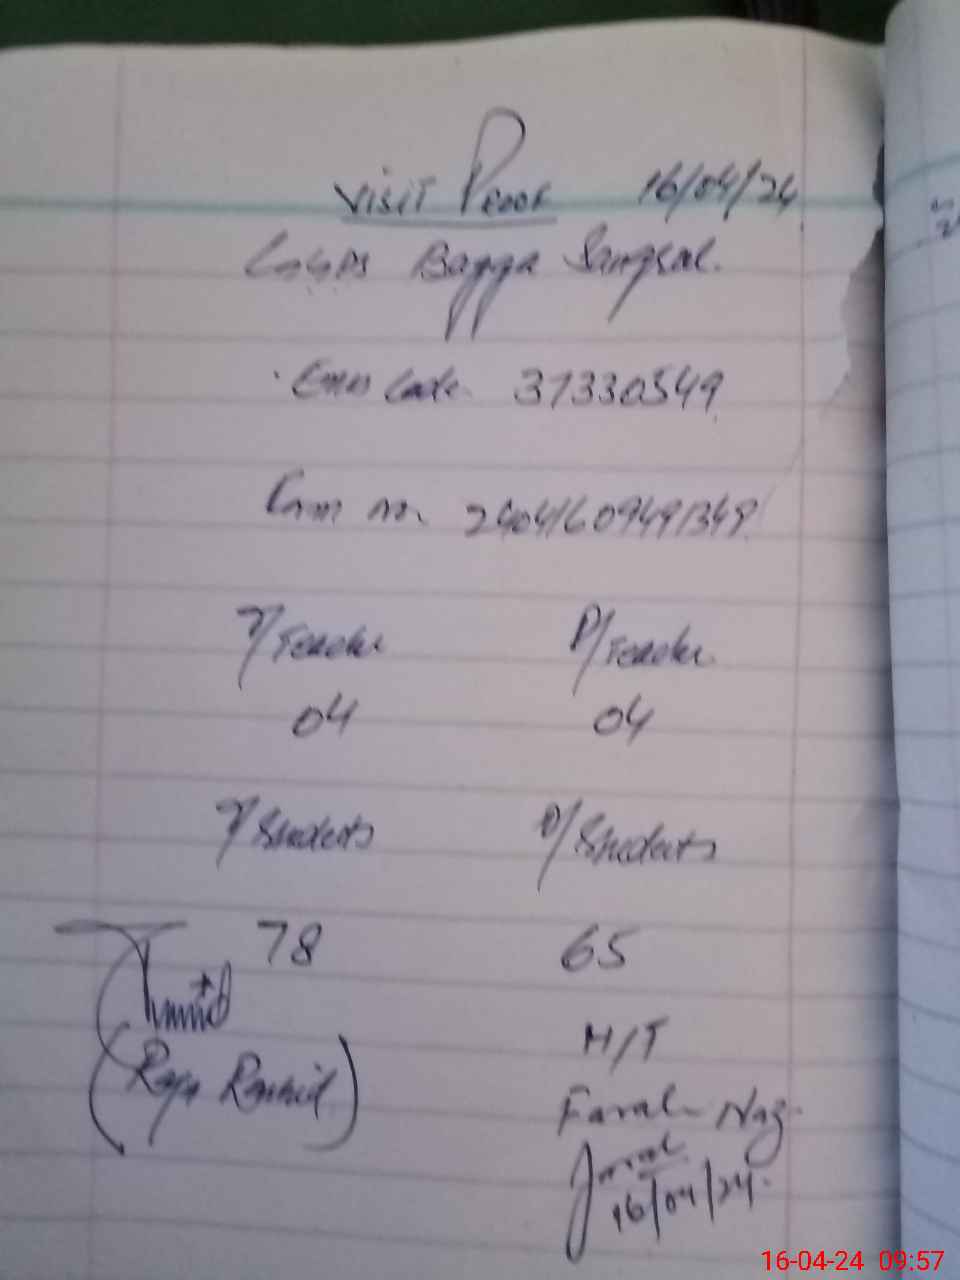 Visit Proof 16/04/24
GGPS Bagga Sangral.
Emis Code. 37330549
T/Teacher P/Teacher
04 04
T/Students P/Students
78 65
(Raja Rashid)
H/T
Farah Naz.
16/04/24.
16-04-24 09:57